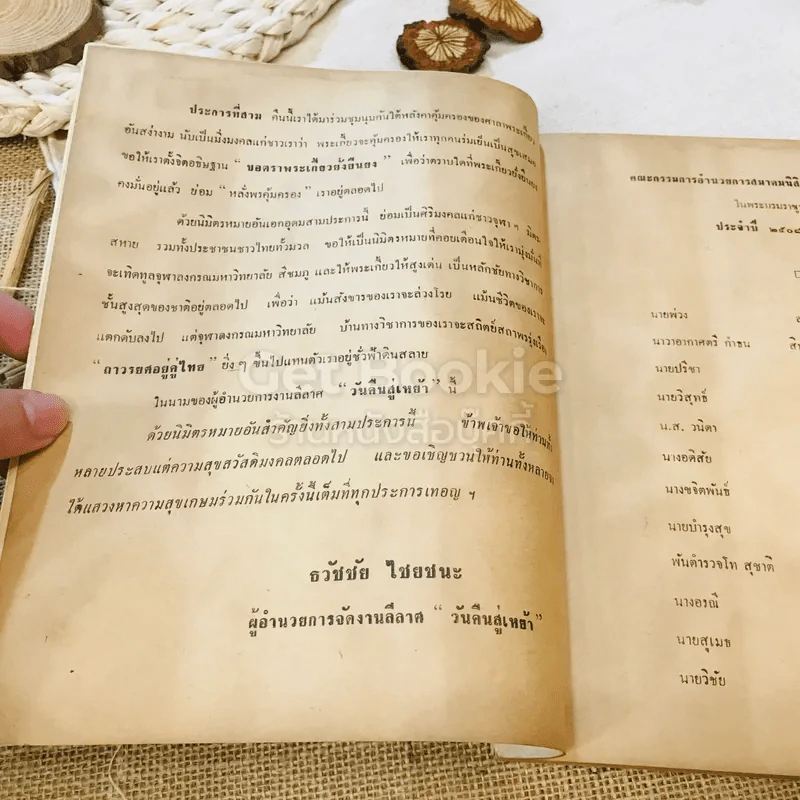 ประการที่สาม คืนนี้เราได้มาร่วมชุมนุมกันใต้หลังคาคุ้มครองของศาลาพระเกี้ยว
อันสง่างาม นับเป็นมิ่งมงคลแก่ชาวเราว่า พระเกี้ยวจะคุ้มครองให้เราทุกคนร่มเย็นเป็นสุขเสมอ
ขอให้เราตั้งจิตอธิษฐาน “ ขอตราพระเกี้ยวยั้งยืนยง ” เพื่อว่าตราบใดที่พระเกี้ยวยั้งยืนยง
คงมั่นอยู่แล้ว ย่อม “ หลั่งพรคุ้มครอง ” เราอยู่ตลอดไป
ด้วยนิมิตรหมายอันเอกอุดมสามประการนี้ ย่อมเป็นศิริมงคลแก่ชาวจุฬา ๆ มิตร
สหาย รวมทั้งประชาชนชาวไทยทั้งมวล ขอให้เป็นนิมิตรหมายที่คอยเตือนใจให้เรามุ่งมั่นที่
จะเทิดทูลจุฬาลงกรณมหาวิทยาลัย สีชมภู และให้พระเกี้ยวให้สูงเด่น เป็นหลักชัยทางวิชาการ
ชั้นสูงสุดของชาติอยู่ตลอดไป เพื่อว่า แม้นสังขารของเราจะล่วงโรย แม้นชีวิตของเราจะ
แตกดับลงไป แต่จุฬาลงกรณมหาวิทยาลัย บ้านทางวิชาการของเราจะสถิตย์สถาพรรุ่งเรือง
“ ถาวรยศอยู่คู่ไทย ” ยิ่ง ๆ ขึ้นไปแทนตัวเราอยู่ชั่วฟ้าดินสลาย
ในนามของผู้อำนวยการงานลีลาศ “ วันคืนสู่เหย้า ” นี้
ด้วยนิมิตรหมายอันสำคัญยิ่งทั้งสามประการนี้ ข้าพเจ้าขอให้ท่านทั้ง
หลายประสบแต่ความสุขสวัสดิมงคลตลอดไป และขอเชิญชวนให้ท่านทั้งหลายจง
ได้แสวงหาความสุขเกษมร่วมกันในครั้งนี้เต็มที่ทุกประการเทอญ ฯ
ธวัชชัย ไชยชนะ
ผู้อำนวยการจัดงานลีลาศ “ วันคืนสู่เหย้า”
คณะกรรมการอำนวยการสมาคมนิสิ
ในพระบรมราชู
ประจำปี ๒๕๐๘
นายพ่วง
นาวาอากาศตรี กำธน
นายปรีชา
นายวิสุทธิ์
น.ส. วนิดา
นางอดิสัย
นางขจิตพันธ์
นายบำรุงสุข
พันตำรวจโท สุชาติ
นางอรณี
นายสุเมธ
นายวิชัย
Get Bookie
ร้านหนังสือบุ๊คกี้